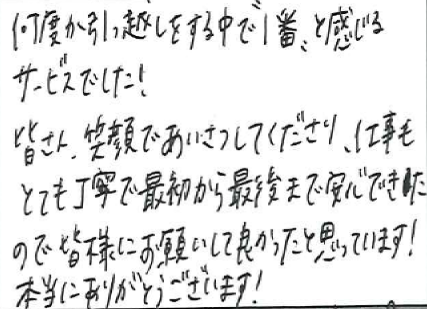 何度か引っ越しをする中で1番、と感じる
サービスでした！
皆さん、笑顔であいさつしてくださり、仕事も
とても丁寧で最初から最後まで安心できた
ので皆様にお願いして良かったと思っています！
本当にありがとうございます！